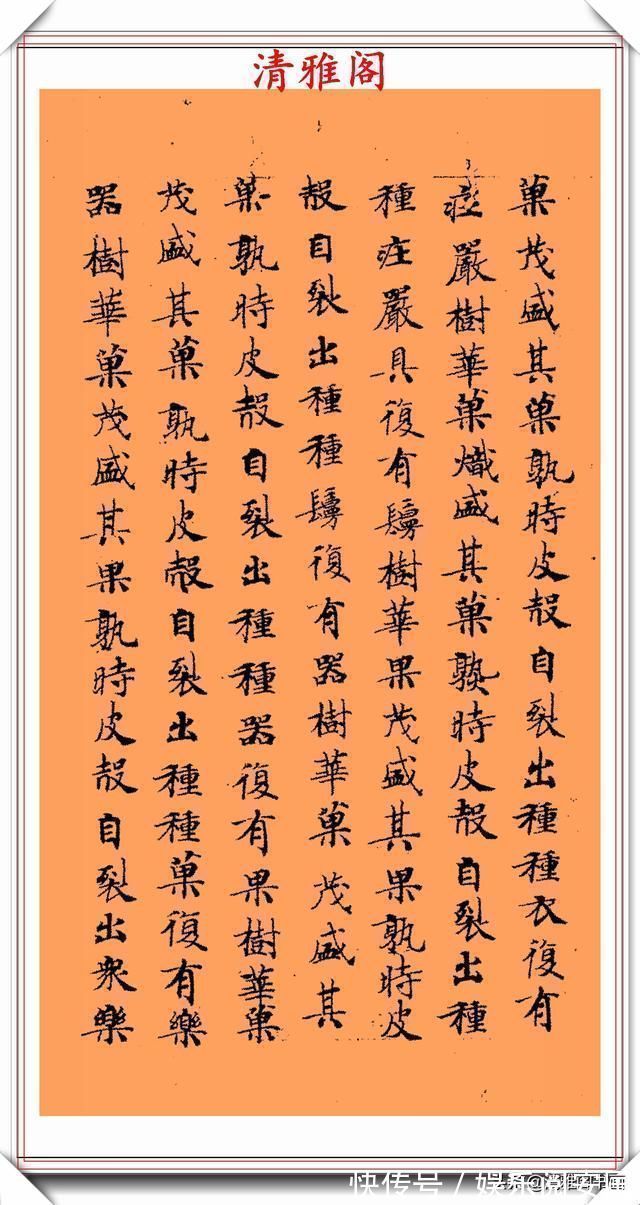 清雅阁
菓茂盛其菓孰時皮殼自裂出種種衣復有
庄嚴樹華菓熾盛其菓孰時皮殼自裂出種
種庄嚴具復有鬘樹華果茂盛其果孰時皮
殼自裂出種種鬘復有器樹華菓茂盛其
菓孰時皮殼自裂出種種器復有果樹華菓
茂盛其菓孰時皮殼自裂出種種菓復有樂
器樹華菓茂盛其果孰時皮殼自裂出眾樂
快传号／娱乐阅安南